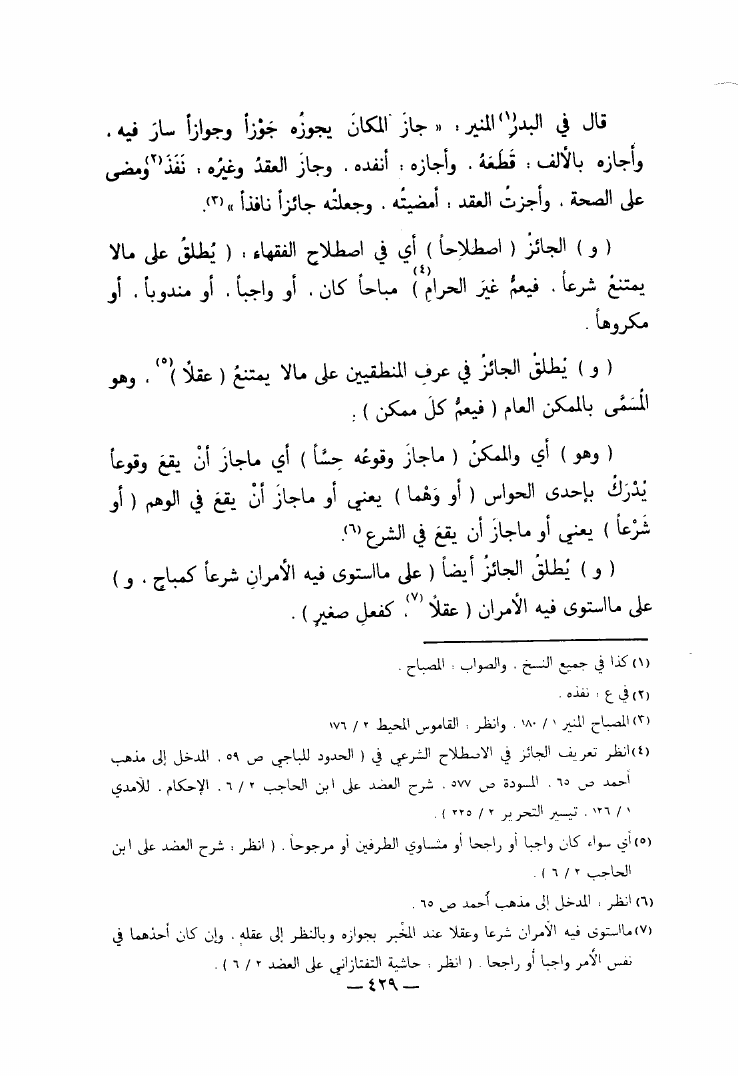 قال في البدرِ(١) المنير : « جازَ المكانَ يجوزُه جَوْزاً وجوازاً سارَ فيه .
وأجازه بالألف : قَطَعَهُ . وأجازه : أنفده . وجاز العقدُ وغيرُه : نَفَذَ(٢) ومضى
على الصحة . وأجزتُ العقد : أمضيتُه . وجعلتُه جائزاً نافذاً »(٣).
( و ) الجائزُ ( اصطلاحاً ) أي في اصطلاح الفقهاء : ( يُطلقُ على مالا
يمتنعُ شرعاً . فيعمُّ غيَر الحرامِ(٤) ) مباحاً كان . أو واجباً . أو مندوباً . أو
مكروهاً .
( و ) يُطلقُ الجائزُ في عرفِ المنطقيين على مالا يمتنعُ ( عقلًا )(٥) . وهو
المُسَمَّى بالممكن العام ( فيعمُّ كلَ ممكن ) .
( وهو ) أي والممكنُ ( ماجازَ وقوعُه حِسَّاً ) أي ماجازَ أنْ يقعَ وقوعاً
يُدْرَكُ بإحدى الحواس ( أو وَهْما ) يعني أو ماجازَ أنْ يقعَ في الوهم ( أو
شَرْعاً ) يعني أو ماجازَ أن يقعَ في الشرع(٦).
( و ) يُطلقُ الجائزُ أيضاً ( على مااستوى فيه الأمرانِ شرعاً كمباحٍ . و )
على مااستوى فيه الأمران ( عقلًا(٧) ، كفعلِ صغيرٍ ) .
(١) كذا في جميع النسخ . والصواب : المصباح .
(٢) في ع : نفذه .
(٣) المصباح المنير ١ / ١٨٠ . وانظر : القاموس المحيط ٢ / ١٧٦
(٤) انظر تعريف الجائز في الاصطلاح الشرعي في ( الحدود للباجي ص ٥٩ . المدخل إلى مذهب
أحمد ص ٦٥ . المسودة ص ٥٧٧ . شرح العضد على ابن الحاجب ٢ / ٦ . الإحكام . للآمدي
١ / ١٢٦ . تيسير التحرير ٢ / ٢٢٥ ) .
(٥) أي سواء كان واجبا أو راجحا أو متساوي الطرفين أو مرجوحاً . ( انظر : شرح العضد على ابن
الحاجب ٢ / ٦ ) .
(٦) انظر : المدخل إلى مذهب أحمد ص ٦٥ .
(٧) مااستوى فيه الأمران شرعا وعقلا عند المُخبر بجوازه وبالنظر إلى عقله . وإن كان أحدهما في
نفس الأمر واجبا أو راجحا . ( انظر : حاشية التفتازاني على العضد ٢ / ٦ ) .
— ٤٢٩ —